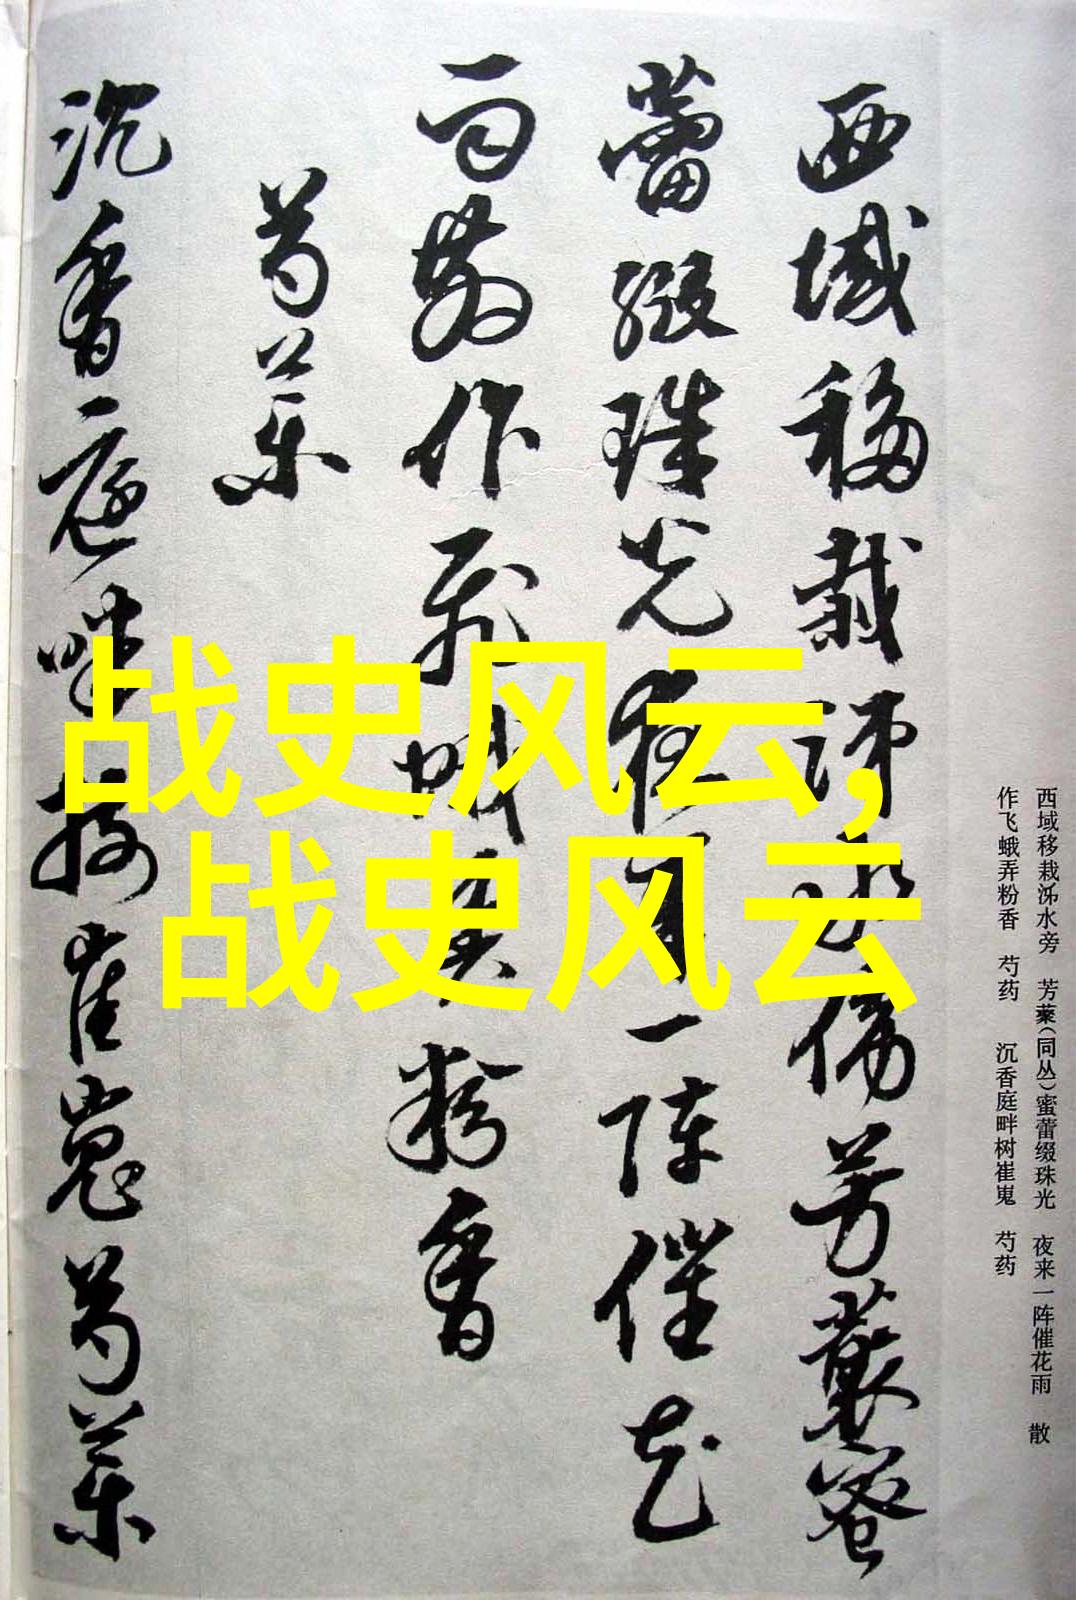 西域移栽泲水傍芳藂蜜
蕾缀珠光夜来一阵催花
雨散作飞蛾弄粉香
芍药
沉香庭畔树崔嵬芍药
战史风云，
战史风云
西域移栽泲水旁 芳藂（同丛）蜜蕾缀珠光 夜来一阵催花雨 散
作飞蛾弄粉香 芍药 沉香庭畔树崔嵬 芍药